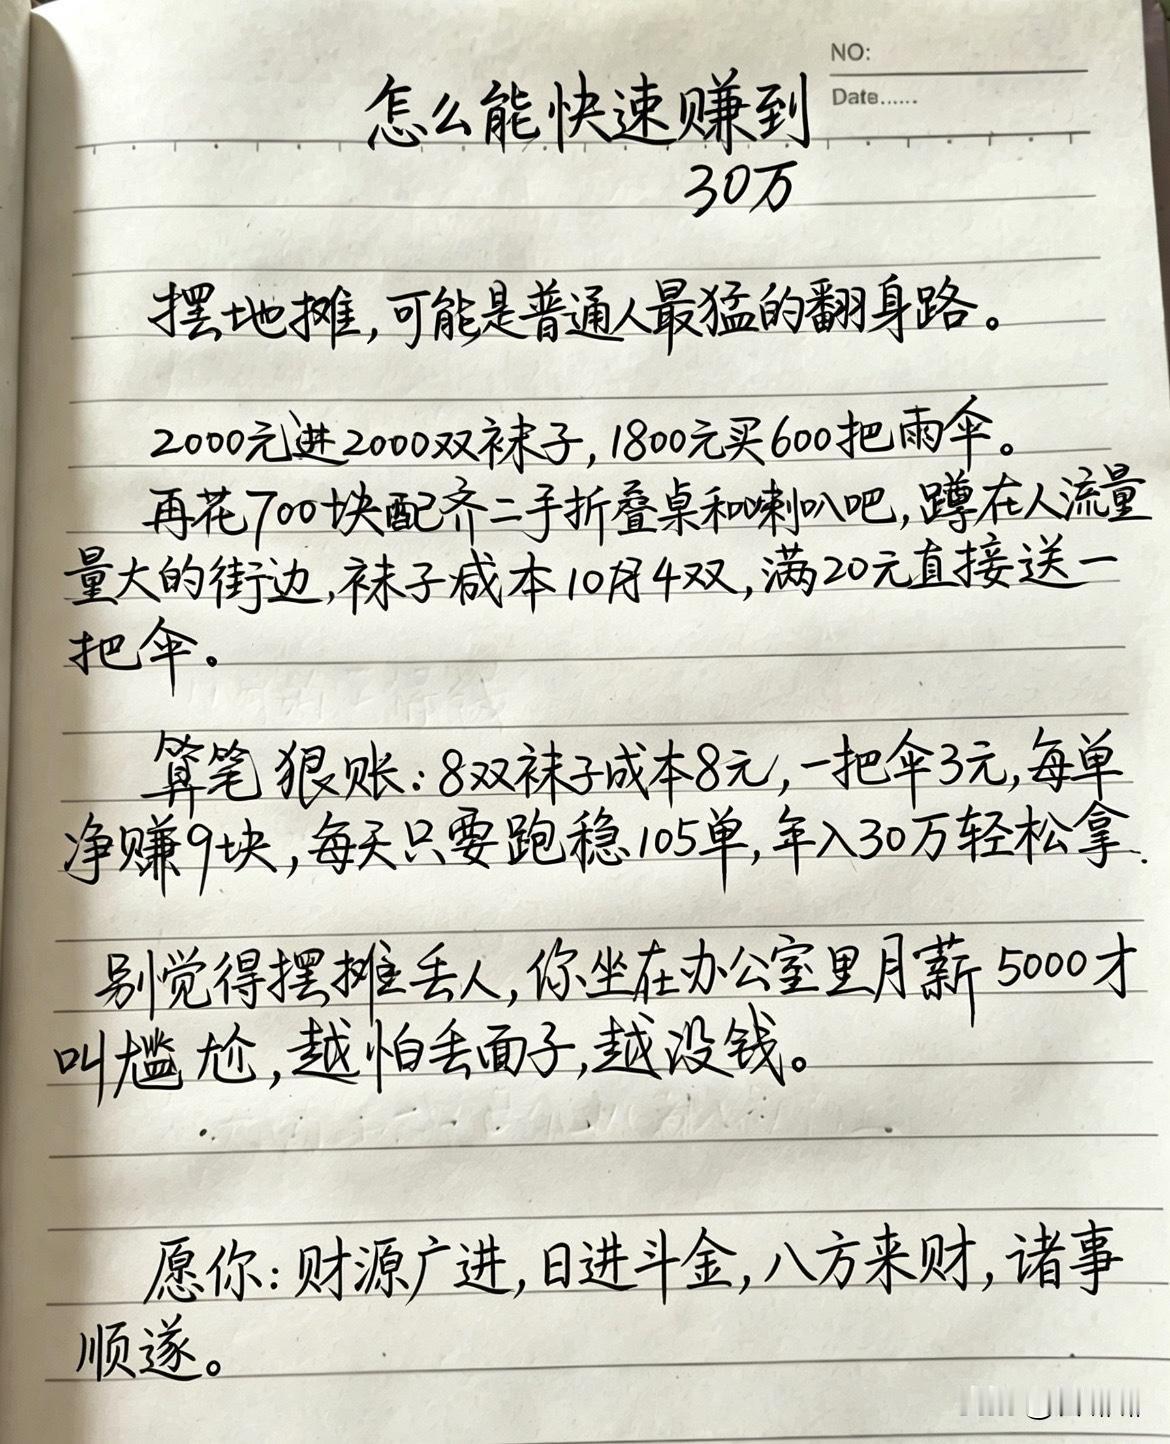 NO:
Date......
怎么能快速赚到
30万
摆地摊,可能是普通人最猛的翻身路。
2000元进2000双袜子,1800元买600把雨伞。
再花700块配齐二手折叠桌和喇叭吧,蹲在人流量
量大的街边,袜子成本10月4双,满20元直接送一
把伞。
算笔狠账:8双袜子成本8元,一把伞3元,每单
净赚9块,每天只要跑稳105单,年入30万轻松拿.
别觉得摆摊丢人,你坐在办公室里月薪5000才
叫尴尬,越怕丢面子,越没钱。
愿你:财源广进,日进斗金,八方来财,诸事
顺遂。